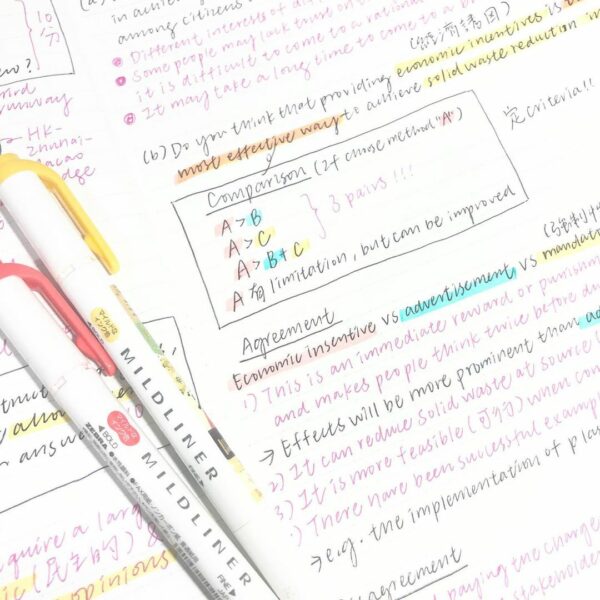 (a)
in achiev
among citizens
Different interests of di
Some people may lack trust on
it is difficult to come to a rational
It may take a long time to come to a
(經濟誘因)
(b) Do you think that providing economic incentives is
most effective way to achieve solid waste reduction in
定 criteria!!
Comparison (2+ choose method "A")
A > B
A > C
A > B + C
3 pairs!!!
A 有 limitation, but can be improved
Agreement
Economic insentive vs advertisement vs mandator
1) This is an immediate reward or punishm
and makes people think twice before du
→ Effects will be more prominent than ad
2) It can reduce solid waste at source (
3) It is more feasible (可行) when com
There have been successful example
→ e.g. the implementation of plas
agreement
paying the charge
stakeholde
10分
HK-
Zhuhai-
acao
dge
answ
quire a larg
ic (民主的)
opinions
マイルドな
インク色
MILDLINER
マイルドな
インク色
BOLD
ZEBRA
MILDLINER
FINE